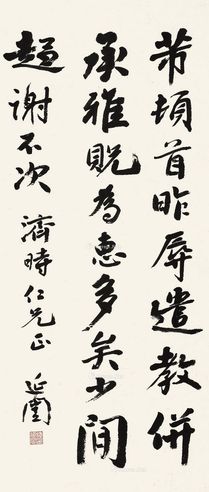 芾頓首昨辱遣教併
承雅貺為惠多矣少間
趨謝不次 濟時仁兄正 延闓